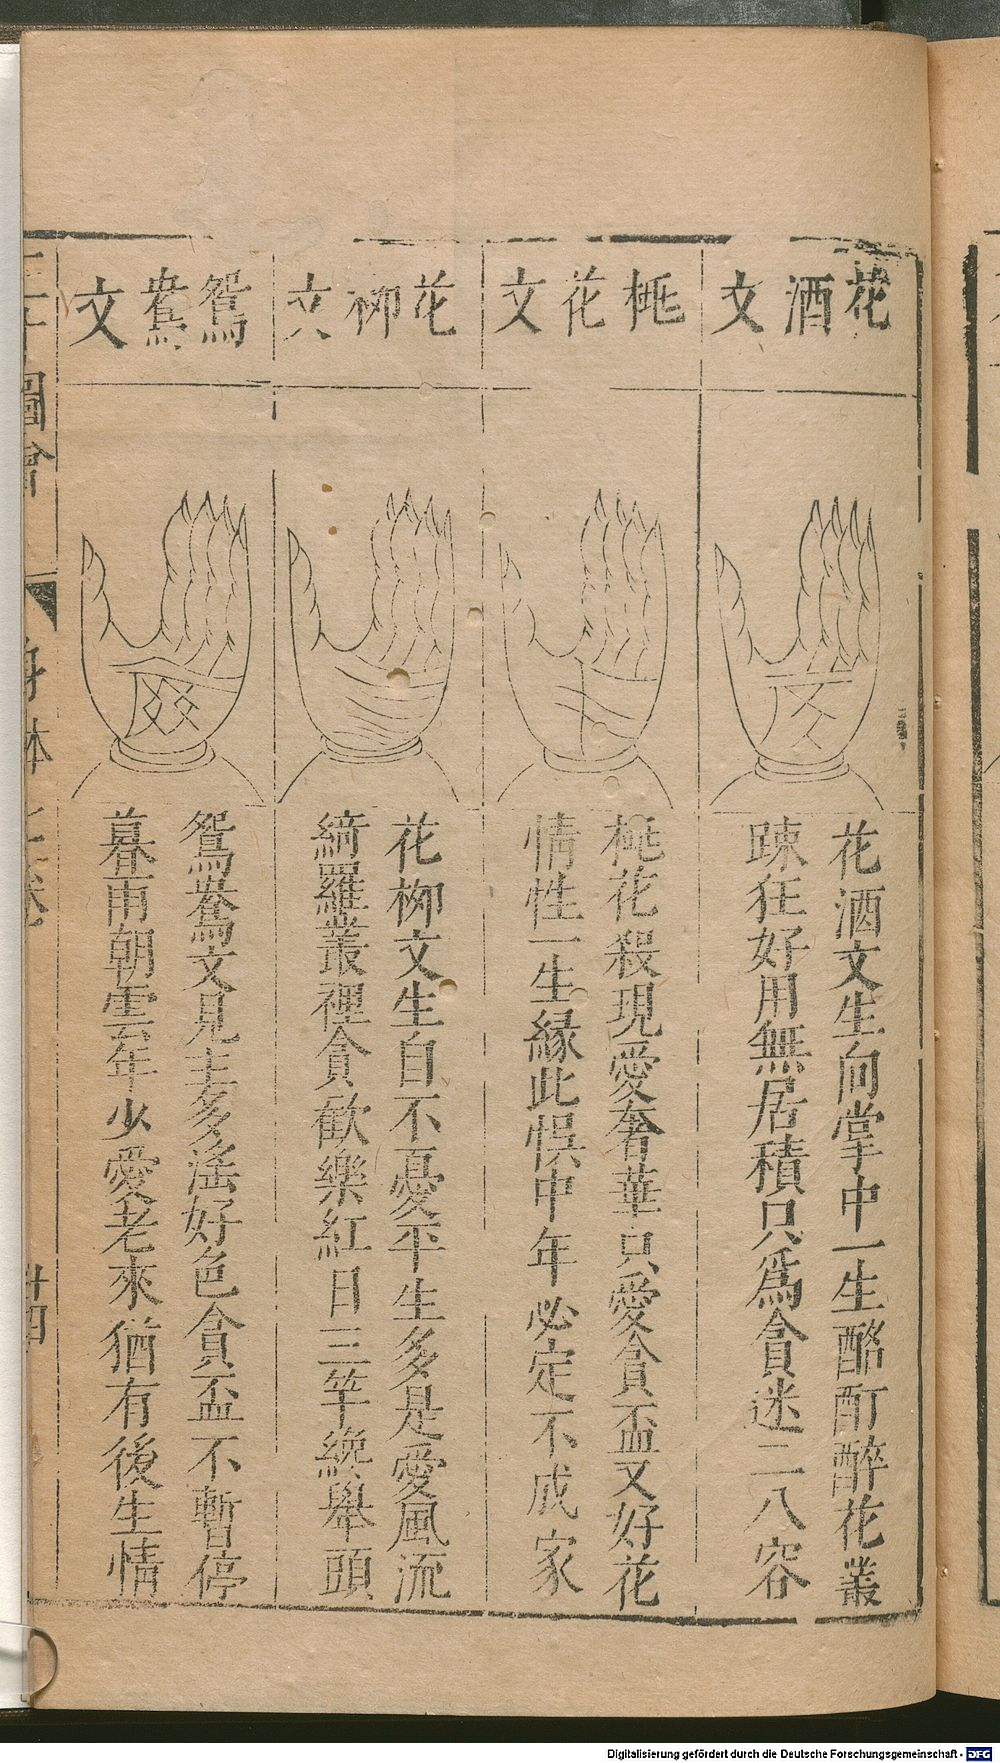 花酒文
花酒文生向掌中一生酩酊醉花叢
踈狂好用無居積只爲貪迷二八容
桃花文
桃花殺現愛奢華只愛貪盃又好花
情性一生緣此悞中年必定不成家
花栁文
花栁文生自不憂平生多是愛風流
綺羅叢裡貪歡樂紅日三竿纔舉頭
鴛鴦文
鴛鴦文見主多滛好色貪盃不暫停
暮雨朝雲年少愛老來猶有後生情
圖會
身体
廿四
Digitalisierung gefördert durch die Deutsche Forschungsgemeinschaft - DFG